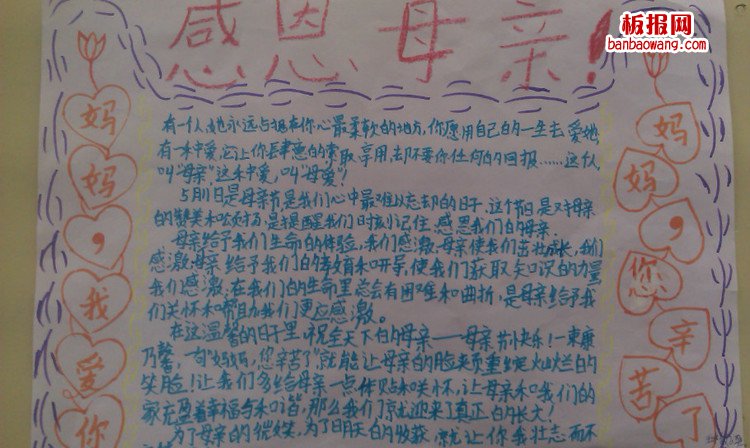 感恩母亲!
板报网
banbaowang.com
妈妈,我爱你
妈妈,您辛苦了
有一个人,她永远占据在你心最柔软的地方,你愿用自己的一生去爱她,
有一种爱,它让你肆意的索取,享用,却不要你任何的回报......这个人,
叫"母亲"这种爱,叫"母爱"!
5月11日是母亲节是我们心中最难以忘却的日子.这个节日是对母亲
的赞美和吟颂,是提醒我们时刻记住,感恩我们的母亲.
母亲给予我们生命的体验,我们感激,母亲使我们茁壮成长,我们
感激,母亲给予我们的教育和开导,使我们获取知识的力量
我们感激.在我们的生命里总会有困难和曲折,是母亲给予我
们关怀和帮助我们更应感激。
在这温馨的日子里,祝全天下的母亲——母亲节快乐!一束康
乃馨,一句"妈妈,您辛苦了"就能让母亲的脸夹页重绽灿烂的
笑脸!让我们多给母亲一点体贴和关怀,让母亲和我们的
家充盈着幸福与和谐,那么我们就迎来了真正的长大!
为了母亲的微笑,为了明天的收获,就让你我壮志而不